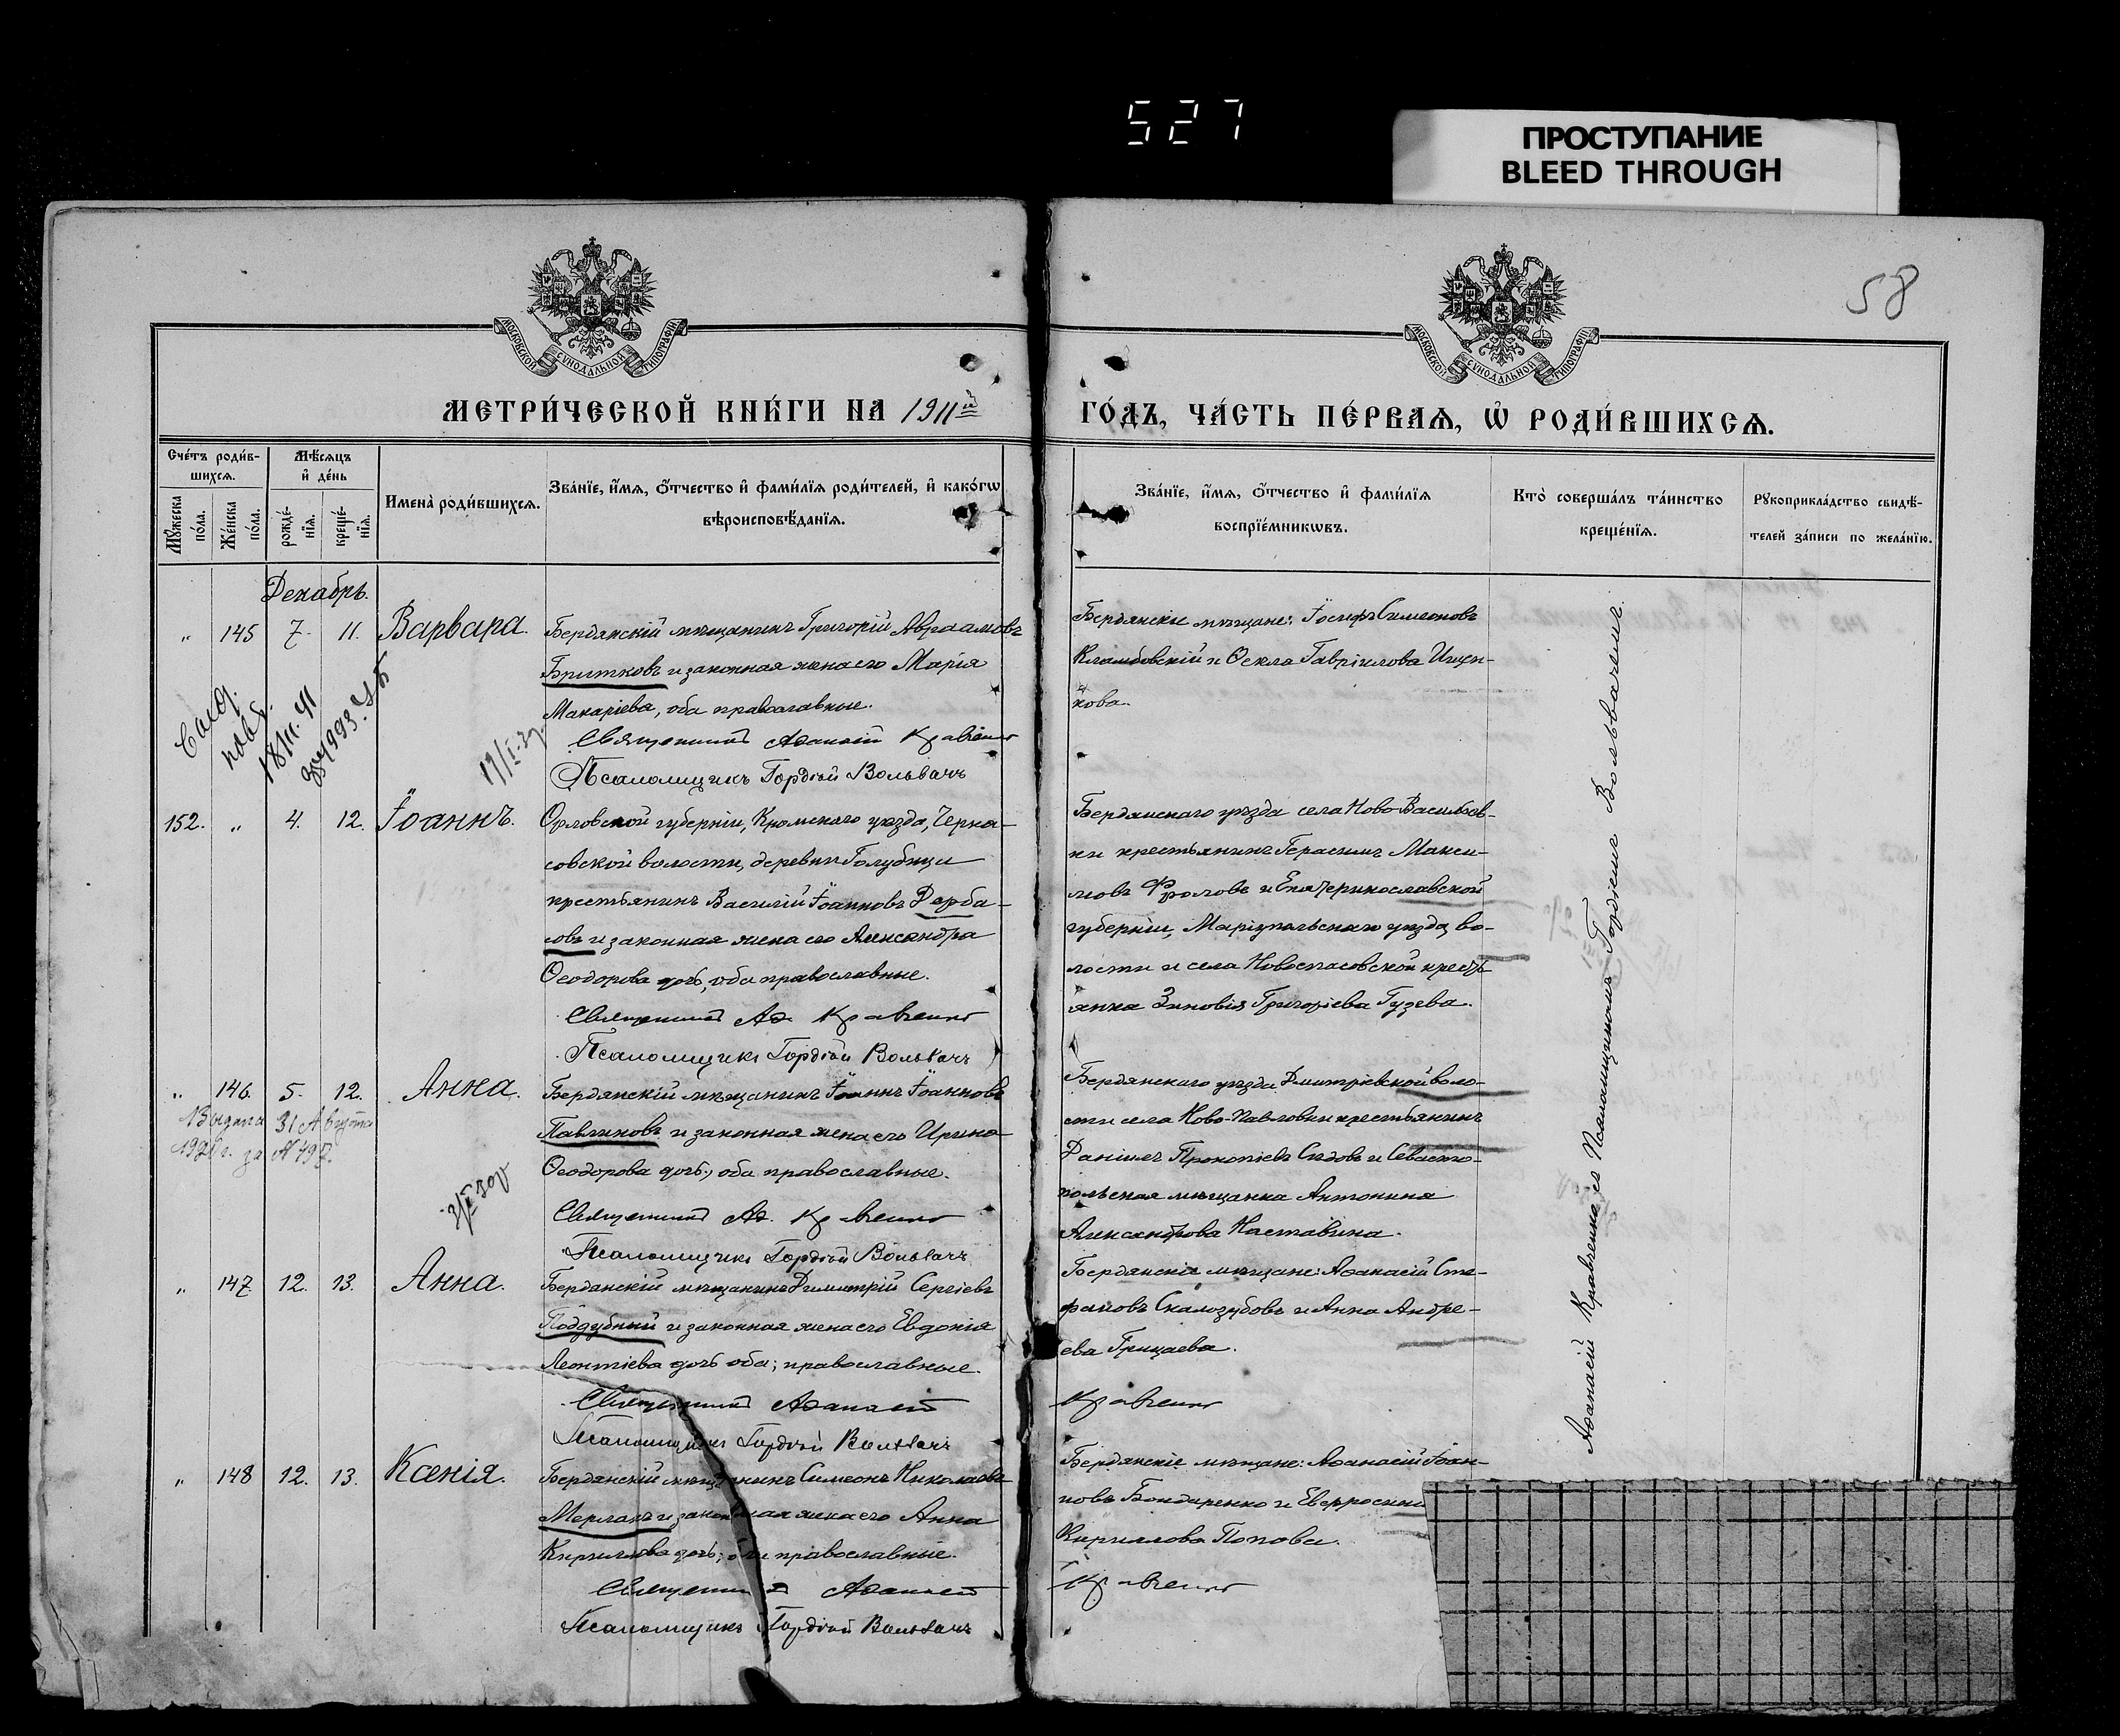 527
ПРОСТУПАНИЕ
BLEED THROUGH
58
МОСКОВСКОЙ СѴНОДАЛЬНОЙ ТИПОГРАФІИ
МОСКОВСКОЙ СѴНОДАЛЬНОЙ ТИПОГРАФІИ
МЕТРИ́ЧЕСКОЙ КНИ́ГИ НА 1911й ГО́ДЪ, ЧА́СТЬ ПЕ́РВАѦ, Ѡ҆ РОДИ́ВШИХСѦ.
Сче́тъ роди́в-
шихсѧ.
Мꙋ́жеска по́ла.
Же́нска по́ла.
Мѣ́сѧцъ
и҆ де́нь
рожде́-
нїѧ.
креще́-
нїѧ.
Имена̀ роди́вшихсѧ.
Зва́нїе, и҆́мѧ, о҆́тчество и҆ фами́лїѧ роди́телей, и҆ како́гѡ
вѣроисповѣ́данїѧ.
Зва́нїе, и҆́мѧ, о҆́тчество и҆ фами́лїѧ
воспрїе́мникѡвъ.
Кто̀ соверша́лъ та́инство
креще́нїѧ.
Рꙋкоприкла́дство свидѣ́-
телей за́писи по жела́нїю.
Декабрь.
" 145 7. 11. Варвара.
Бердянскій мѣщанинъ Григорій Авраамовъ
Бритковъ и законная жена его Марія
Макаріева, оба православные.
Священникъ Аѳанасій Кравченко
Псаломщикъ Гордій Вольвачъ
Бердянскіе мѣщане: Іосифъ Симеоновъ
и Ѳекла Гавріилова Ищен-
кова.
18/III. 41
152. " 4. 12. Іоаннъ.
Орловской губерніи, Кромскаго уѣзда, Черка-
совской волости, деревни Голубицы
крестьянинъ Василій Іоанновъ Дерба-
совъ и законная жена его Александра
Ѳеодорова дочь, оба православные.
Священникъ Аѳ. Кравченко
Псаломщикъ Гордій Вольвачъ
Бердянскаго уѣзда села Ново-Васильев-
ки крестьянинъ Герасимъ Макси-
мовъ Фроловъ и Екатеринославской
губерніи, Маріупольскаго уѣзда, во-
лости и села Новоспасовской кресть-
янка Зиновія Григоріева Гузева.
" 146. 5. 12. Анна.
Выдана 31 Августа
за № 497.
Бердянскій мѣщанинъ Іоаннъ Іоанновъ
Павликовъ и законная жена его Ирина
Ѳеодорова дочь, оба православные.
Священникъ Аѳ. Кравченко
Псаломщикъ Гордій Вольвачъ
Бердянскаго уѣзда Дмитріевской воло-
сти села Ново-Павловки крестьянинъ
Даніилъ Прокопіевъ Сѣдовъ и Севасто-
польская мѣщанка Антонина
Александрова Наставина.
" 147. 12. 13. Анна.
Бердянскій мѣщанинъ Димитрій Сергіевъ
Поддубный и законная жена его Евдокія
Леонтіева дочь оба; православные.
Священникъ Аѳанасій Кравченко
Псаломщикъ Гордій Вольвачъ
Бердянскіе мѣщане: Аѳанасій Сте-
фановъ Скалозубовъ и Анна Андре-
ева Грицаева.
" 148 12. 13. Ксенія.
Бердянскій мѣщанинъ Симеонъ Николаевъ
Мерланъ и законная жена его Анна
Кириллова дочь; оба православные.
Священникъ Аѳанасій Кравченко
Псаломщикъ Гордій Вольвачъ
Бердянскіе мѣщане: Аѳанасій Іоан-
новъ Бондаренко и
Кириллова Попова.
Аѳанасій Кравченко съ Псаломщикомъ Гордіемъ Вольвачемъ.